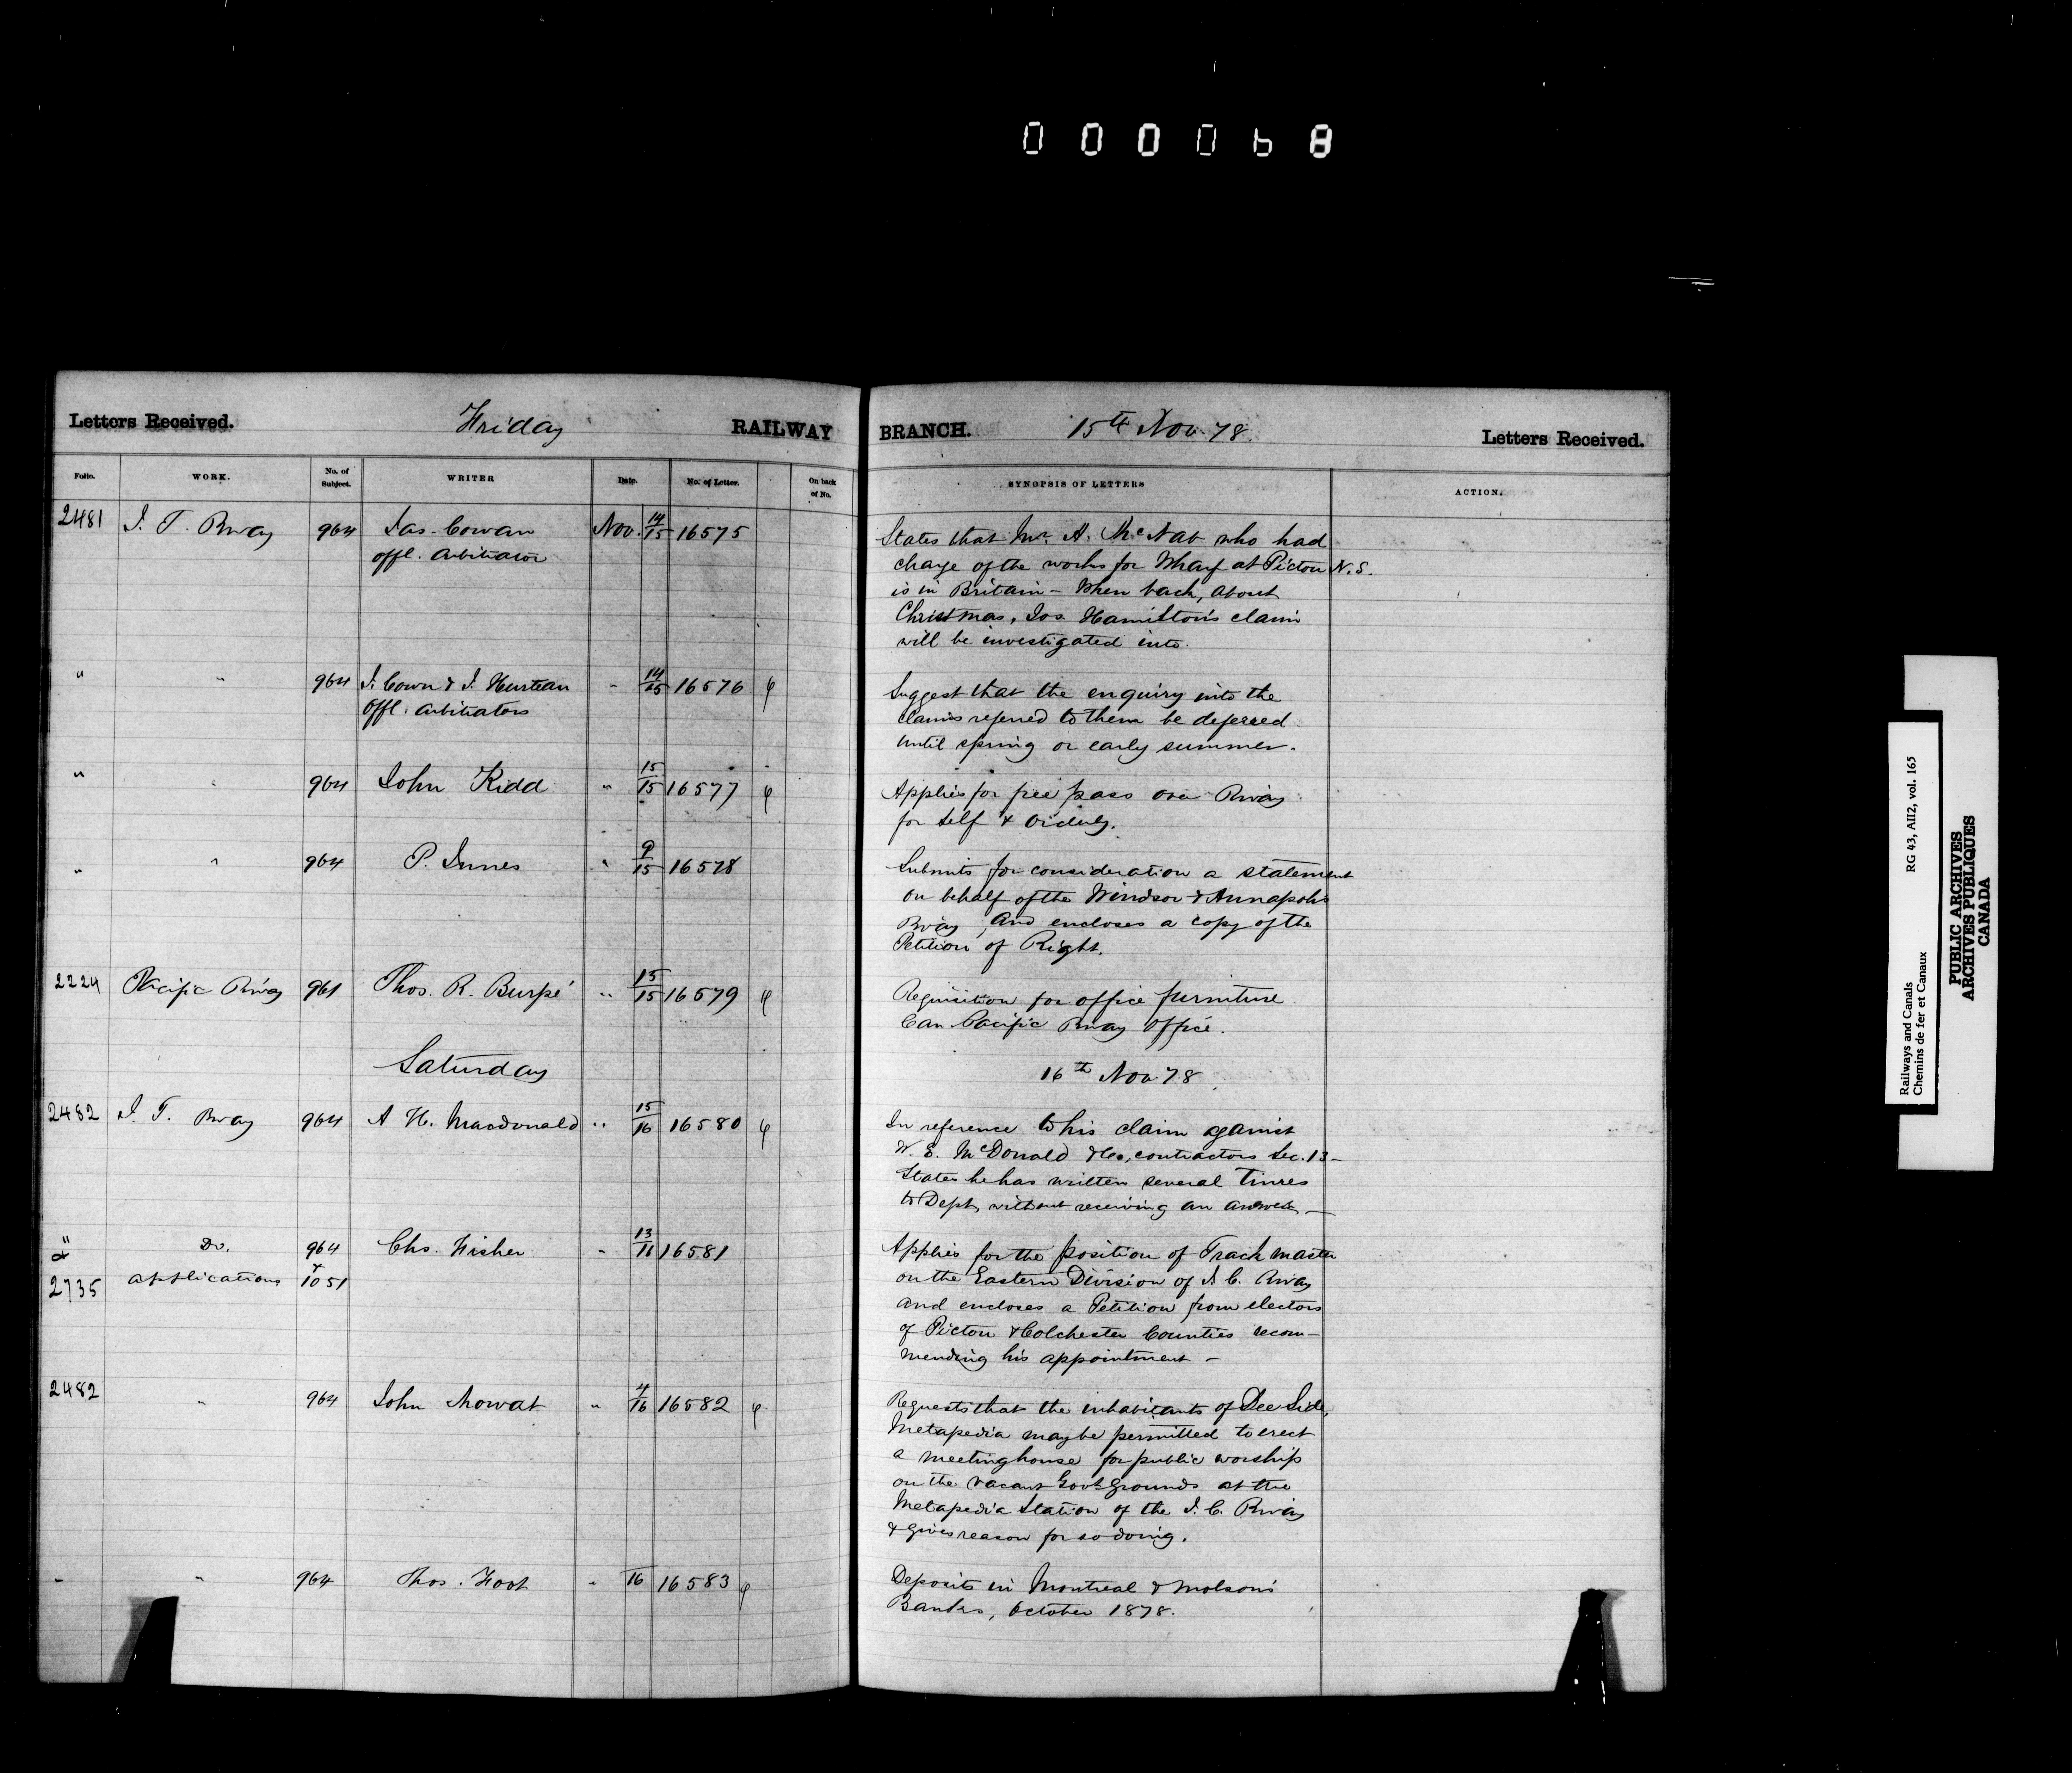 000068
Letters Received. Friday RAILWAY BRANCH. 15th Nov. 78. Letters Received.
Folio. WORK. No. of Subject. WRITER Date. No. of Letter. On back of No. SYNOPSIS OF LETTERS ACTION.
2481 I. C. Rway 964 Jas. Cowan Nov. 14/15 16575
offl. Arbitrator
States that Mr. A. McNab who had
charge of the works for Wharf at Pictou N.S.
is in Britain – When back, about
Christmas, Jos. Hamilton's claim
will be investigated into.
" " 964 J. Cowan & I. Hurteau " 14/15 16576 φ
offl. Arbitrators
Suggest that the enquiry into the
claims referred to them be deferred
until spring or early summer.
" " 964 John Kidd " 15/15 16577 φ
Applies for free pass over Rway
for self &
" " 964 P. Innes " 9/15 16578
Submits for consideration a statement
on behalf of the Windsor & Annapolis
Rway, and encloses a copy of the
Petition of Right.
2224 Pacific Rway 961 Thos. R. Burpé " 15/15 16579 φ
Requisition for office furniture
Can. Pacific Rway Office.
Saturday 16th Nov. 78
2482 I. C. Rway 964 A H. Macdonald " 15/16 16580 φ
In reference to his claim against
W. E. McDonald & Co, contractors Sec. 13 –
States he has written several times
to Dept, without receiving an answer –
" Do. 964 Chs. Fisher " 13/16 16581
& &
2735 Applications 1051
Applies for the position of Track master
on the Eastern Division of I. C. Rway
and encloses a Petition from electors
of Pictou & Colchester Counties recom–
mending his appointment –
2482 " 964 John Mowat " 4/16 16582 φ
Requests that the inhabitants of Dee Side,
Metapedia may be permitted to erect
a meetinghouse for public worship
on the vacant Govt. Grounds at the
Metapedia Station of the I. C. Rway
& gives reason for so doing.
" " 964 Thos. Foot " 16 16583 φ
Deposits in Montreal & Molson's
Banks, October 1878.
Railways and Canals RG 43, AII2, vol. 165
Chemins de fer et Canaux
PUBLIC ARCHIVES
ARCHIVES PUBLIQUES
CANADA